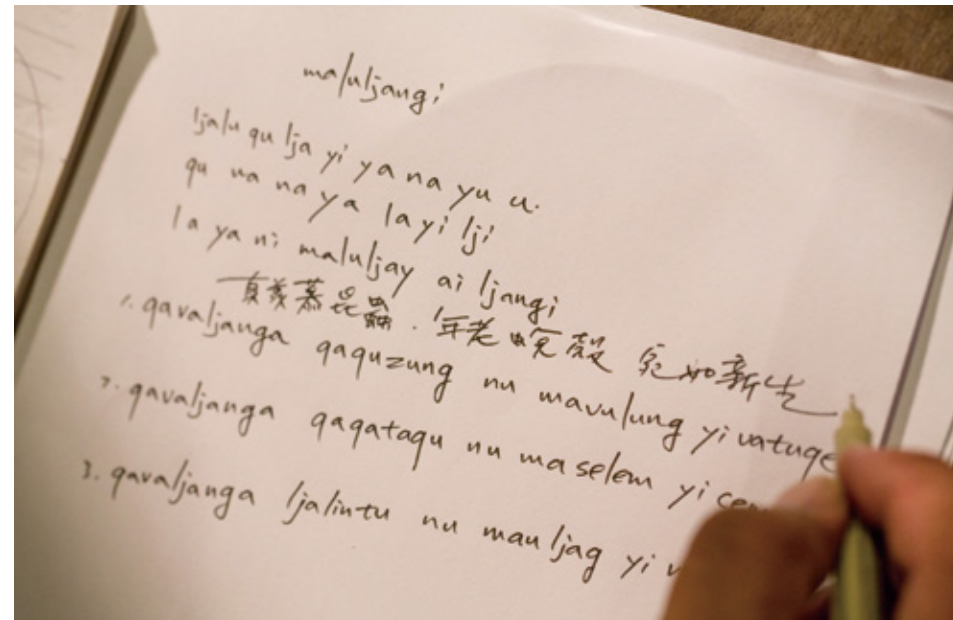 maluljangi
ljalu qu lja yi ya na yu u.
qu na na ya la yi lji
la ya ni maluljay ai ljangi
真羨慕昆蟲.年老蛻殼 宛如新生
1. qavaljanga qaquzung nu mavulung yi vatuqe
2. qavaljanga qaqataqu nu maselem yi
3. qavaljanga ljalintu nu mauljag yi